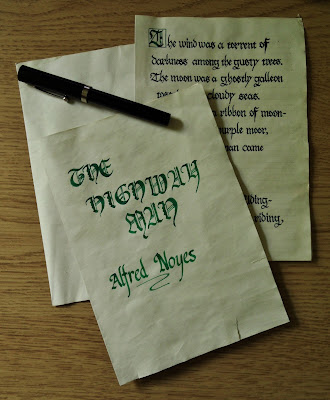 The wind was a torrent of
darkness among the gusty trees.
The moon was a ghostly galleon
cloudy seas.
ribbon of moon-
purple moor,
man came
riding-
riding,
THE
HIGHWAY
MAN
Alfred Noyes